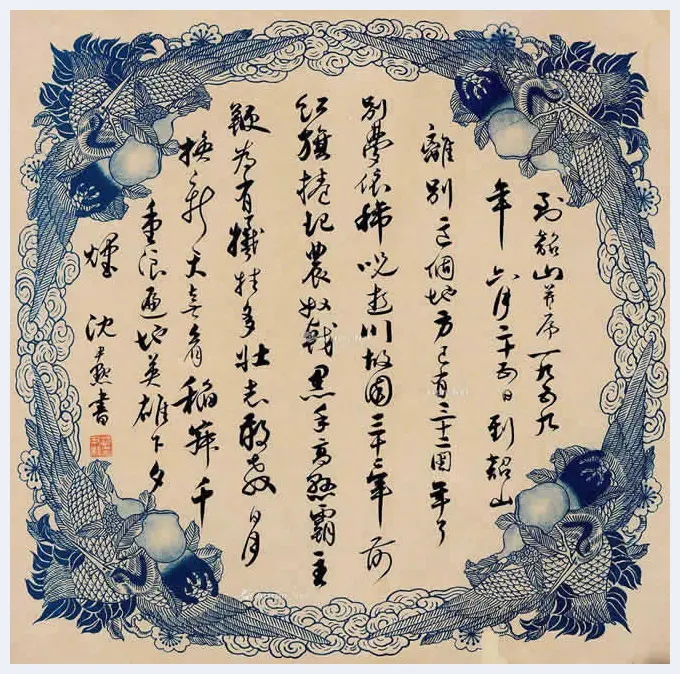 到韶山并序一九五九
年六月二十五日到韶山
離別這個地方已有三十二周年了
別夢依稀呪逝川故園三十二年前
紅旗捲起農奴戟黑手高懸霸主
鞭為有犧牲多壯志敢教日月
換新天喜看稻菽千
重浪遍地英雄下夕
煙 沈尹默書